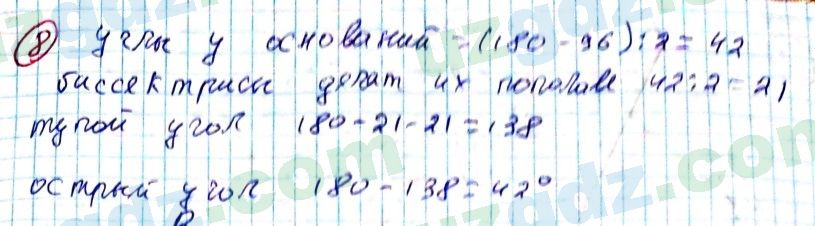 ⑧ углы у оснований = (180 - 96) : 2 = 42
биссектрисы делат их пополам 42 : 2 = 21
тупой угол 180 - 21 - 21 = 138
острый угол 180 - 138 = 42°